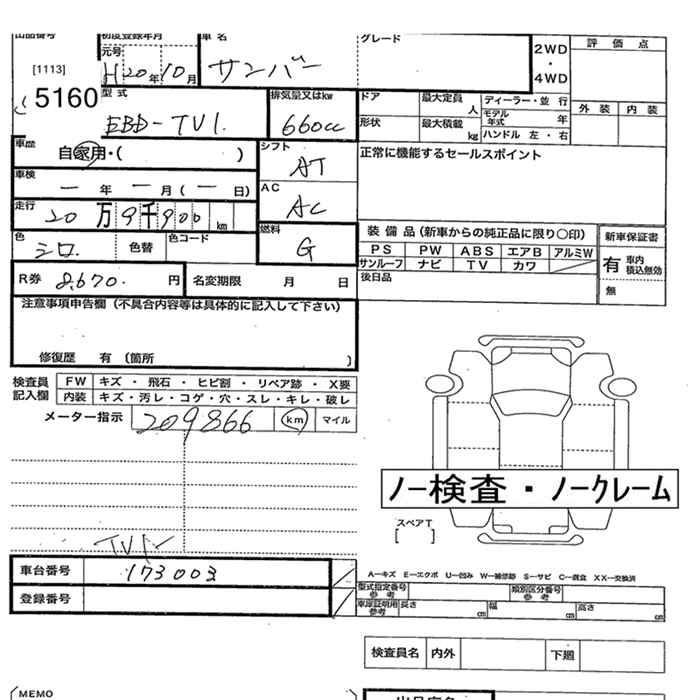 出品番号 初度登録年月 車名 グレード
[1113] 元号 H20年10月 サンバー 2WD・4WD 評価点
5160 型式 EBD-TV1. 排気量又はkw 660cc
ドア 最大定員 人 ディーラー・並行 外装 内装
形状 最大積載 kg モデル年式 年
ハンドル 左・右
車歴 自家用・( ) シフト AT 正常に機能するセールスポイント
車検 ー年ー月(ー日) AC AC
走行 20万9千900km 燃料 G 装備品(新車からの純正品に限り○印) 新車保証書
色 シロ. 色替 色コード PS PW ABS エアB アルミW 有 車内積込無効
サンルーフ ナビ TV カワ
R券 8,670. 円 名変期限 月 日 後日品 無
注意事項申告欄(不具合内容等は具体的に記入して下さい)
修復歴 有 (箇所 )
検査員記入欄 FW キズ・飛石・ヒビ割・リペア跡・X要
内装 キズ・汚レ・コゲ・穴・スレ・キレ・破レ
メーター指示 209866 km マイル
ノー検査・ノークレーム
スペアT
[ ]
TV1-
車台番号 173003
登録番号
A―キズ E―エクボ U―凹み W―補修跡 S―サビ C―腐食 XX―交換済
型式指定番号 参考 類別区分番号 参考
車庫証明用 参考 長さ cm 幅 cm 高さ cm
検査員名 内外 下廻
MEMO 出品店名